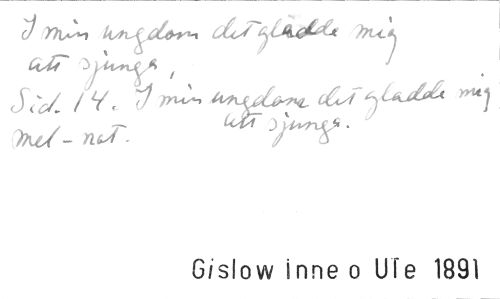 I min ungdom det gladde mig
att sjunga,
Sid. 14. I min ungdom det gladde mig
att sjunga.
Mel-not.
Gislow inne o Ule 1891